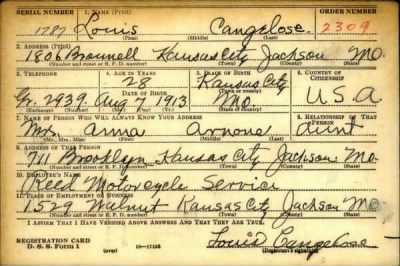 SERIAL NUMBER 1. NAME (Print) ORDER NUMBER
1787 Louis Cangelose 2309
(First) (Middle) (Last)
2. ADDRESS (Print)
1806 Brownell Kansas City Jackson Mo.
(Number and street or R. F. D. number) (Town) (County) (State)
3. TELEPHONE 4. AGE IN YEARS 5. PLACE OF BIRTH 6. COUNTRY OF CITIZENSHIP
28 Kansas City
DATE OF BIRTH
Gr. 2939 Aug 7, 1913 Mo U.S.A
7. NAME OF PERSON WHO WILL ALWAYS KNOW YOUR ADDRESS 8. RELATIONSHIP OF THAT PERSON
Mrs. Anna Arnone Aunt
(Mr., Mrs., Miss) (First) (Middle) (Last)
9. ADDRESS OF THAT PERSON
711 Brooklyn Kansas City Jackson Mo.
(Number and street or R. F. D. number) (Town) (County) (State)
10. EMPLOYER'S NAME
Reed Motorcycle Service
11. PLACE OF EMPLOYMENT OR BUSINESS
1529 Walnut Kansas City Jackson Mo
(Number and street or R. F. D. number) (Town) (County) (State)
I AFFIRM THAT I HAVE VERIFIED ABOVE ANSWERS AND THAT THEY ARE TRUE.
REGISTRATION CARD
D. S. S. Form 1 (over) 16—17105 Louis Cangelose
(Registrant's signature)